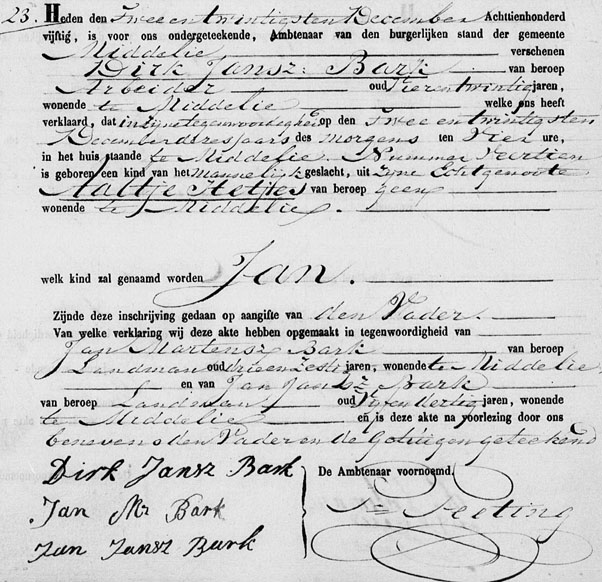 23. Heden den Twee en twintigsten December Achttienhonderd
vijftig, is voor ons ondergeteekende, Ambtenaar van den burgerlijken stand der gemeente
Middelie verschenen
Dirk Jansz: Bark van beroep
Arbeider oud Vier en twintig jaren,
wonende te Middelie welke ons heeft
verklaard, dat in zijne tegenwoordigheid op den Twee en twintigsten
December dezes jaars des morgens ten Vier ure,
in het huis staande te Middelie Nummer Veertien
is geboren een kind van het Mannelijk geslacht, uit zyne Echtgenoote
Aaltje Hetjes van beroep geen
wonende te Middelie.
welk kind zal genaamd worden Jan.
Zijnde deze inschrijving gedaan op aangifte van den Vader.
Van welke verklaring wij deze akte hebben opgemaakt in tegenwoordigheid van
Jan Martensz Bark van beroep
Landman oud drie en Zestig jaren, wonende te Middelie
en van Jan Jansz Bark
van beroep Landman oud Vijf en dertig jaren, wonende
te Middelie en is deze akte na voorlezing door ons
benevens den Vader en de Getuigen geteekend
Dirk Jansz Bark De Ambtenaar voornoemd.
Jan Mz Bark
Jan Jansz Bark